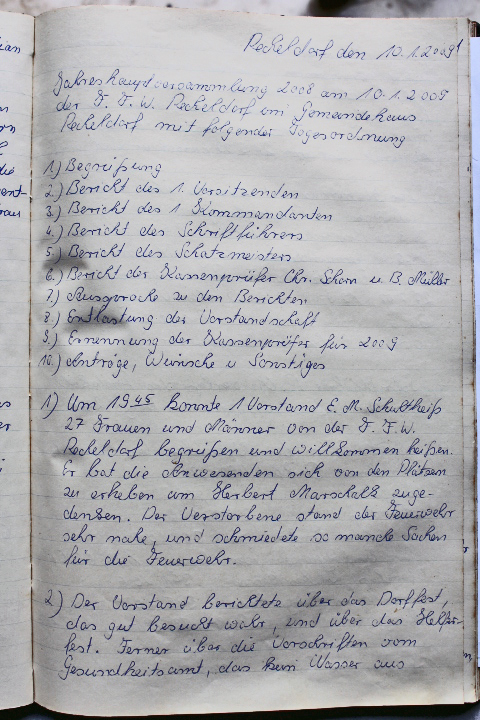 Recheldorf den 10.1.2009
Jahreshauptversammlung 2008 am 10.1.2009
der F. F. W. Recheldorf im Gemeindehaus
Recheldorf mit folgender Tagesordnung
1.) Begrüßung
2.) Bericht des 1. Vorsitzenden
3.) Bericht des 1 Kommandanten
4.) Bericht des Schriftführers
5.) Bericht des Schatzmeisters
6.) Bericht der Kassenprüfer Chr. Schorn u. B. Müller
7.) Aussprache zu den Berichten
8.) Entlastung der Vorstandschaft
9.) Ernennung der Kassenprüfer für 2009
10.) Anträge, Wünsche u Sonstiges
1) Um 19 45 konnte 1 Vorstand E. M. Schultheiß
27 Frauen und Männer von der F. F. W.
Recheldorf begrüßen und willkommen heißen.
Er bat die Anwesenden sich von den Plätzen
zu erheben um Herbert Marschalk zuge-
denken. Der Verstorbene stand der Feuerwehr
sehr nahe, und schmiedete so manche Sachen
für die Feuerwehr.
2) Der Vorstand berichtete über das Dorffest,
das gut besucht wahr, und über das Helfer-
fest. Ferner über die Vorschriften vom
Gesundheitsamt, das kein Wasser aus